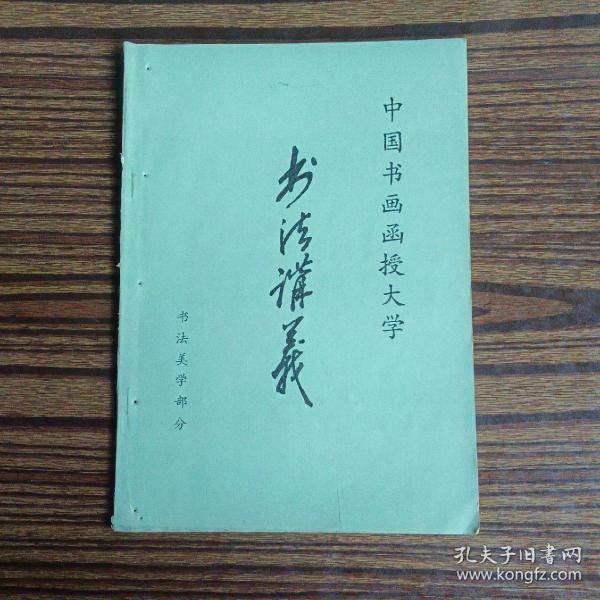 中国书画函授大学
书法講義
书法美学部分
孔夫子旧書网
www.kongfz.com